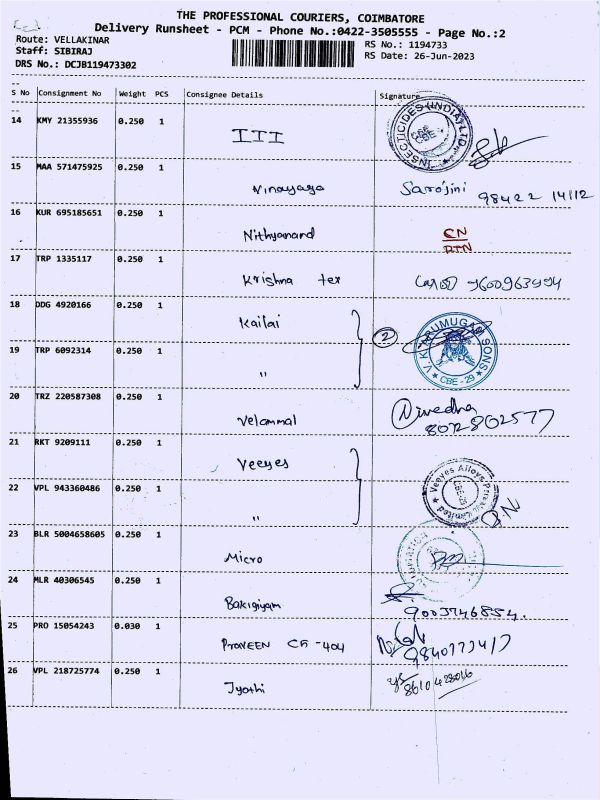 THE PROFESSIONAL COURIERS, COIMBATORE
Delivery Runsheet - PCM - Phone No.:0422-3505555 - Page No.:2
Route: VELLAKINAR
Staff: SIBIRAJ
DRS No.: DCJB119473302
RS No.: 1194733
RS Date: 26-Jun-2023
S No Consignment No Weight PCS Consignee Details Signature
14 KMY 21355936 0.250 1
III
INSECTICIDES (INDIA) LTD.
CBE
15 MAA 571475925 0.250 1
Vinayaga Sarojini 98422 14112
16 KUR 695185651 0.250 1
Nithyanand CN
RTN
17 TRP 1335117 0.250 1
Krishna tex 9600963494
18 DDG 4920166 0.250 1
Kailai
2
V. K. ARUMUGAM SONS
CBE - 29
19 TRP 6092314 0.250 1
"
20 TRZ 220587308 0.250 1
Velammal Nivedha
8072802577
21 RKT 9209111 0.250 1
Veeyes
Veeyes Alloys Private Limited
22 VPL 943360486 0.250 1
"
23 BLR 5004658605 0.250 1
Micro
24 MLR 40306545 0.250 1
Bakigiyam 9003746854.
25 PRO 15054243 0.030 1
PRAVEEN CR-404
26 VPL 218725774 0.250 1
Jyothi